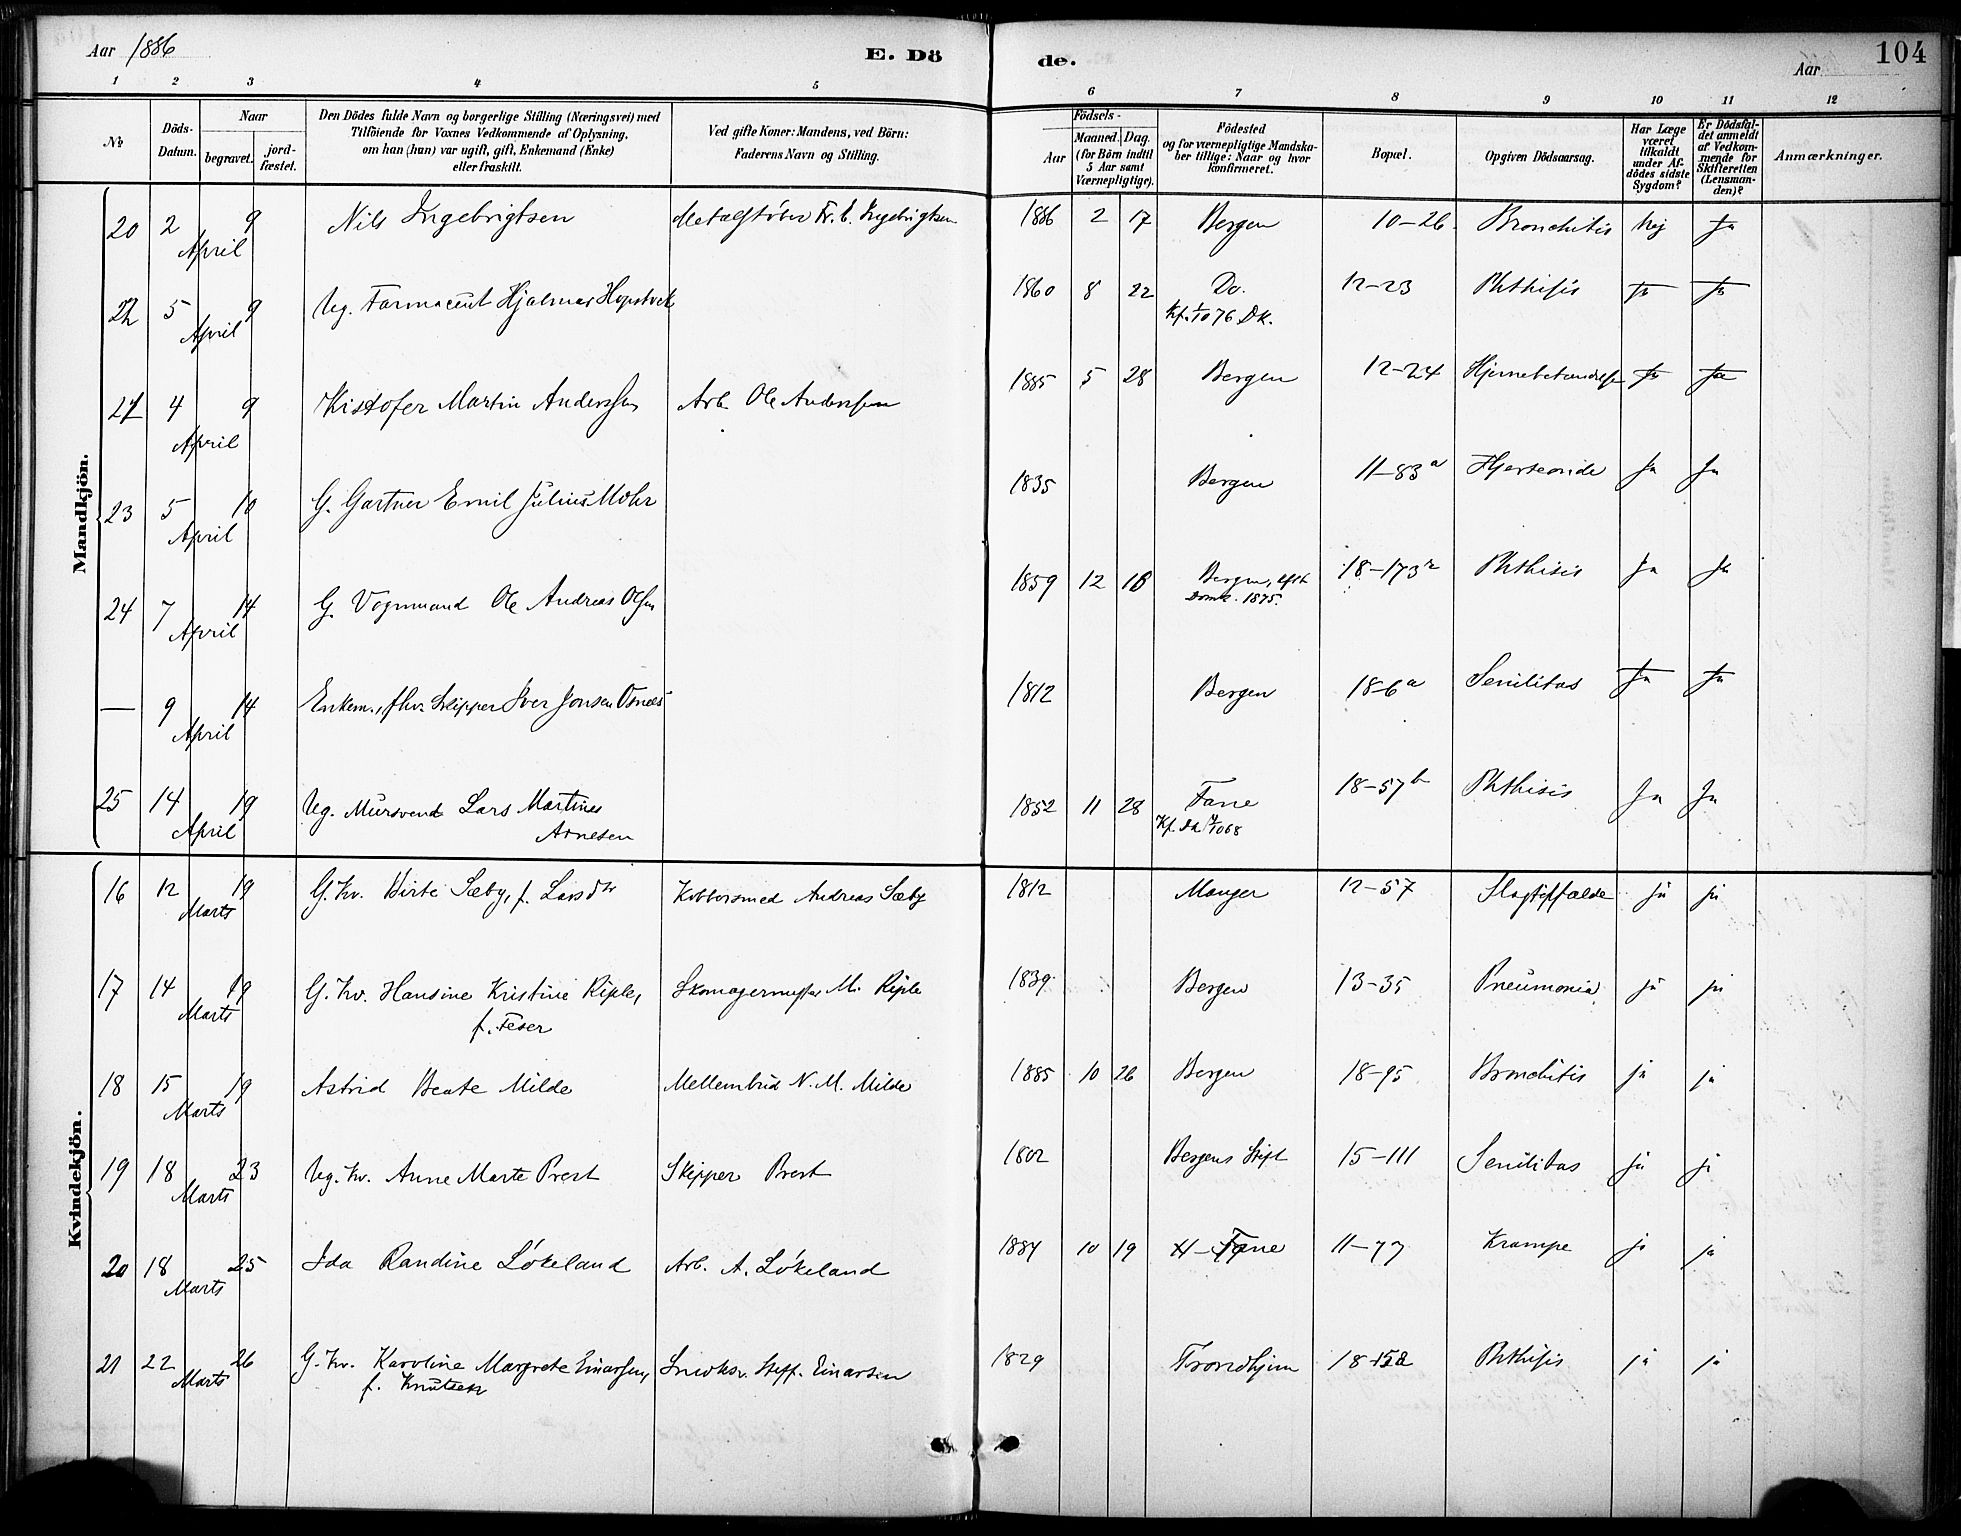 Aar 1886
E. Dö
de.
Aar
104
1 2 3 4 5 6 7 8 9 10 11 12
№
Döds-
Datum.
Naar
begravet.
jord-
fæstet.
Den Dödes fulde Navn og borgerlige Stilling (Næringsvei) med
Tilföiende for Voxnes Vedkommende af Oplysning,
om han (hun) var ugift, gift, Enkemand (Enke)
eller fraskilt.
Ved gifte Koner: Mandens, ved Börn:
Faderens Navn og Stilling.
Födsels-
Aar
Maaned. Dag.
(for Börn indtil
5 Aar samt
Værnepligtige).
Födested
og for værnepligtige Mandska-
ber tillige: Naar og hvor
konfirmeret.
Bopæl.
Opgiven Dödsaarsag.
Har Læge
været
tilkaldt
under Af-
dödes sidste
Sygdom?
Er Dödsfal-
det anmeldt
af Vedkom-
mende for
Skifteretten
(Lensman-
den)?
Anmærkninger.
Mandkjön.
20 2 April 9 Nils Ingebrigtsen Metalstøber Fr. C. Ingebrigtsen 1886 2 17 Bergen 10-26 Bronchitis Nej Ja
22 5 April 9 Ug. Farmaceut Hjalmar Hopstock 1860 8 22 Do. 12-23 Phthisis Ja Ja
Kf. 1/10 76 DK.
21 4 April 9 Kistofer Martin Anderssen Arb. Ole Anderssen 1885 5 28 Bergen 12-24 Hjernebetændelse Ja Ja
23 5 April 10 G. Gartner Emil Julius Mohr 1835 Bergen 11-83a Hjerteonde Ja Ja
24 7 April 14 G. Vognmand Ole Andreas Olsen 1859 12 18 Bergen, 18-173 Phthisis Ja Ja
Domk. 1875.
— 9 April 14 Enkem., fhv. Skipper Iver Jonsen Osnes 1812 Bergen 18-6a Senilitas Ja Ja
25 14 April 19 Ug. Mursvend Lars Martines 1852 11 28 Fane 18-57b Phthisis Ja Ja
Arnesen
Kvindekjön.
16 12 Marts 19 G. Kv. Birte Sæby, f. Larsdtr Kobbersmed Andreas Sæby 1812 Manger 12-57 ja ja
17 14 Marts 19 G. Kv. Hansine Kristine Riple, Skomagermester M. Riple 1839 Bergen 13-35 Pneumonia ja ja
f. Feser
18 15 Marts 19 Astrid Beate Milde Mellembud N. M. Milde 1885 10 26 Bergen 18-95 Bronchitis ja ja
19 18 Marts 23 Ug. Kv. Anne Marte Prest Skipper Prest 1802 Bergens Stift 15-111 Senilitas ja ja
20 18 Marts 25 Ida Randine Løkeland Arb. A. Løkeland 1884 10 19 Fane 11-77 Krampe ja ja
21 22 Marts 26 G. Kv. Karoline Margrete Einarsen, Snedks. Steff. Einarsen 1829 Trondhjem 18-152 Phthisis ja ja
f. Knutsen